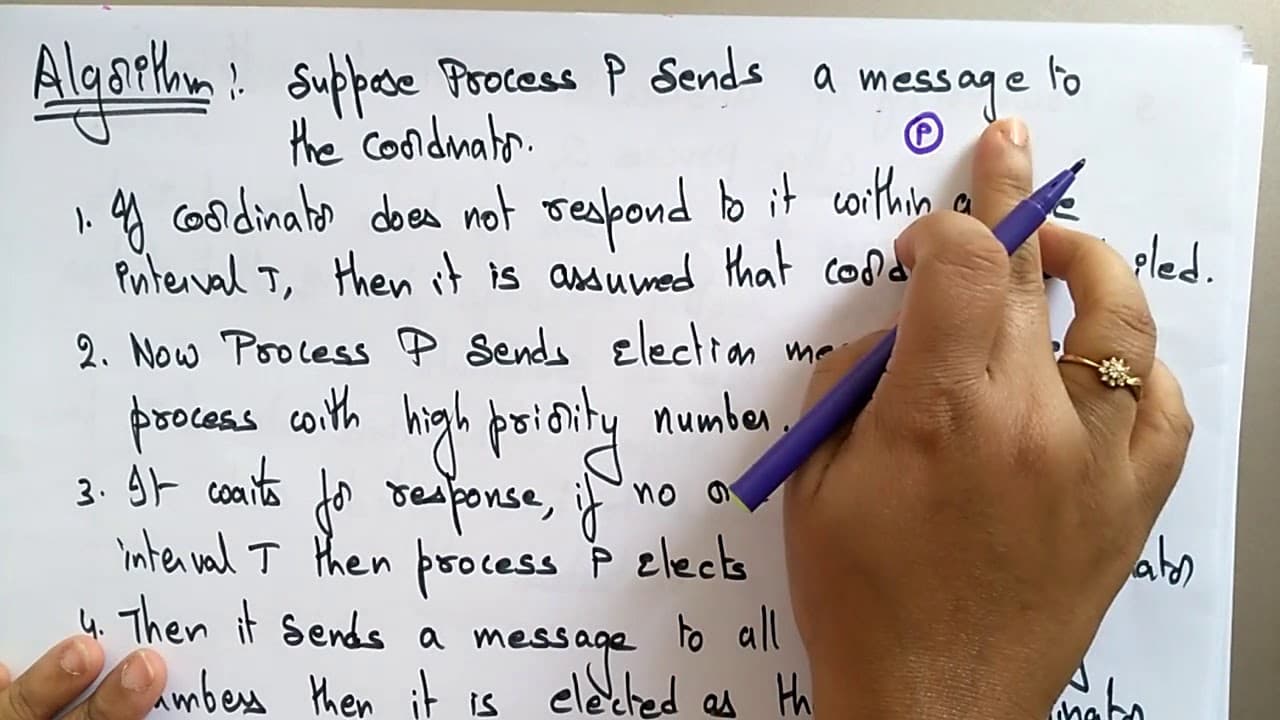 Algorithm: Suppose Process P sends a message to
the coordinator.
P
1. If coordinator does not respond to it within a
interval T, then it is assumed that
2. Now Process P sends Election
process with high priority number.
3. It waits for response, if no
interval T then process P elects
4. Then it sends a message to all
then it is elected as